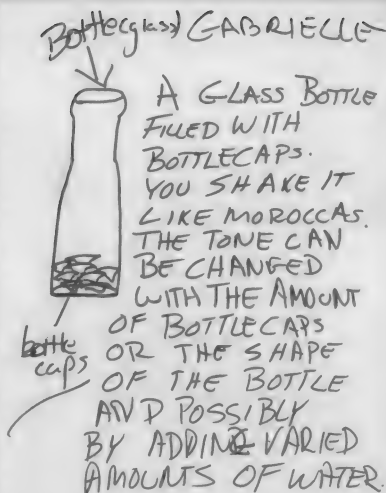 Bottle(glass) GABRIELLE
A GLASS BOTTLE
FILLED WITH
BOTTLECAPS.
YOU SHAKE IT
LIKE MOROCCAS.
THE TONE CAN
BE CHANGED
WITH THE AMOUNT
OF BOTTLECAPS
bottle caps
OR THE SHAPE
OF THE BOTTLE
AND POSSIBLY
BY ADDING VARIED
AMOUNTS OF WATER.